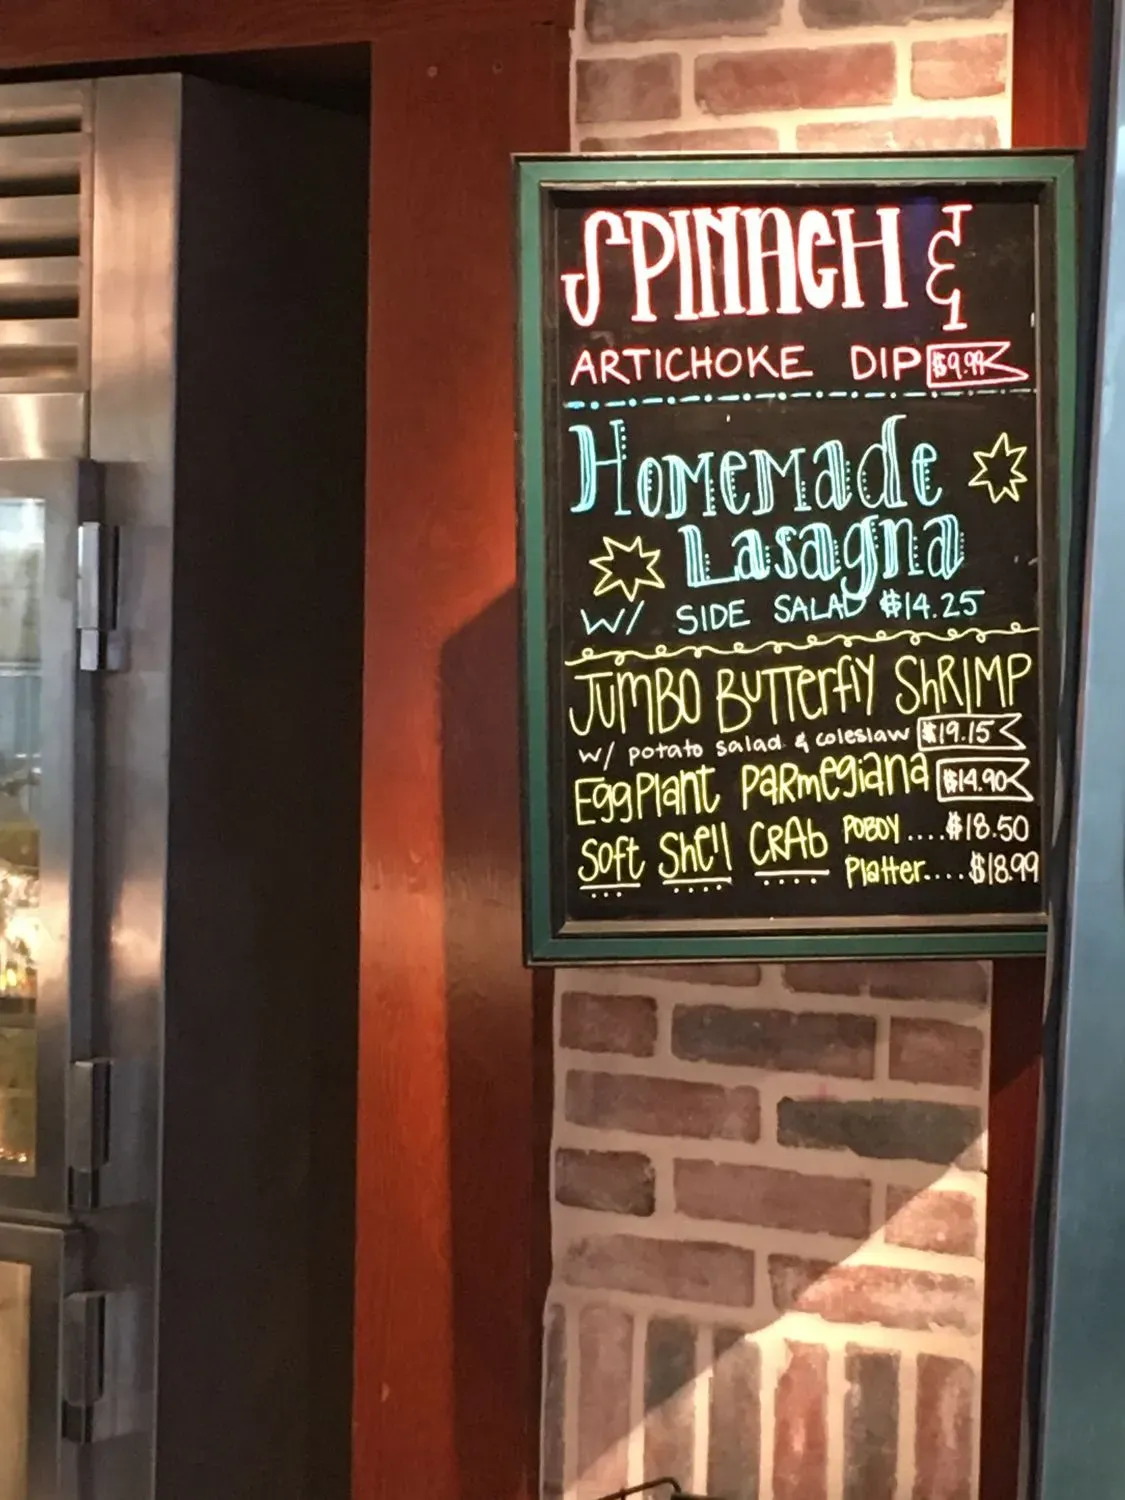 SPINACH &
ARTICHOKE DIP $9.99
Homemade
Lasagna
W/ SIDE SALAD $14.25
Jumbo Butterfly Shrimp
w/ potato salad & coleslaw $19.15
Eggplant Parmegiana $14.90
Soft Shell Crab POBOY ....$18.50
Platter....$18.99